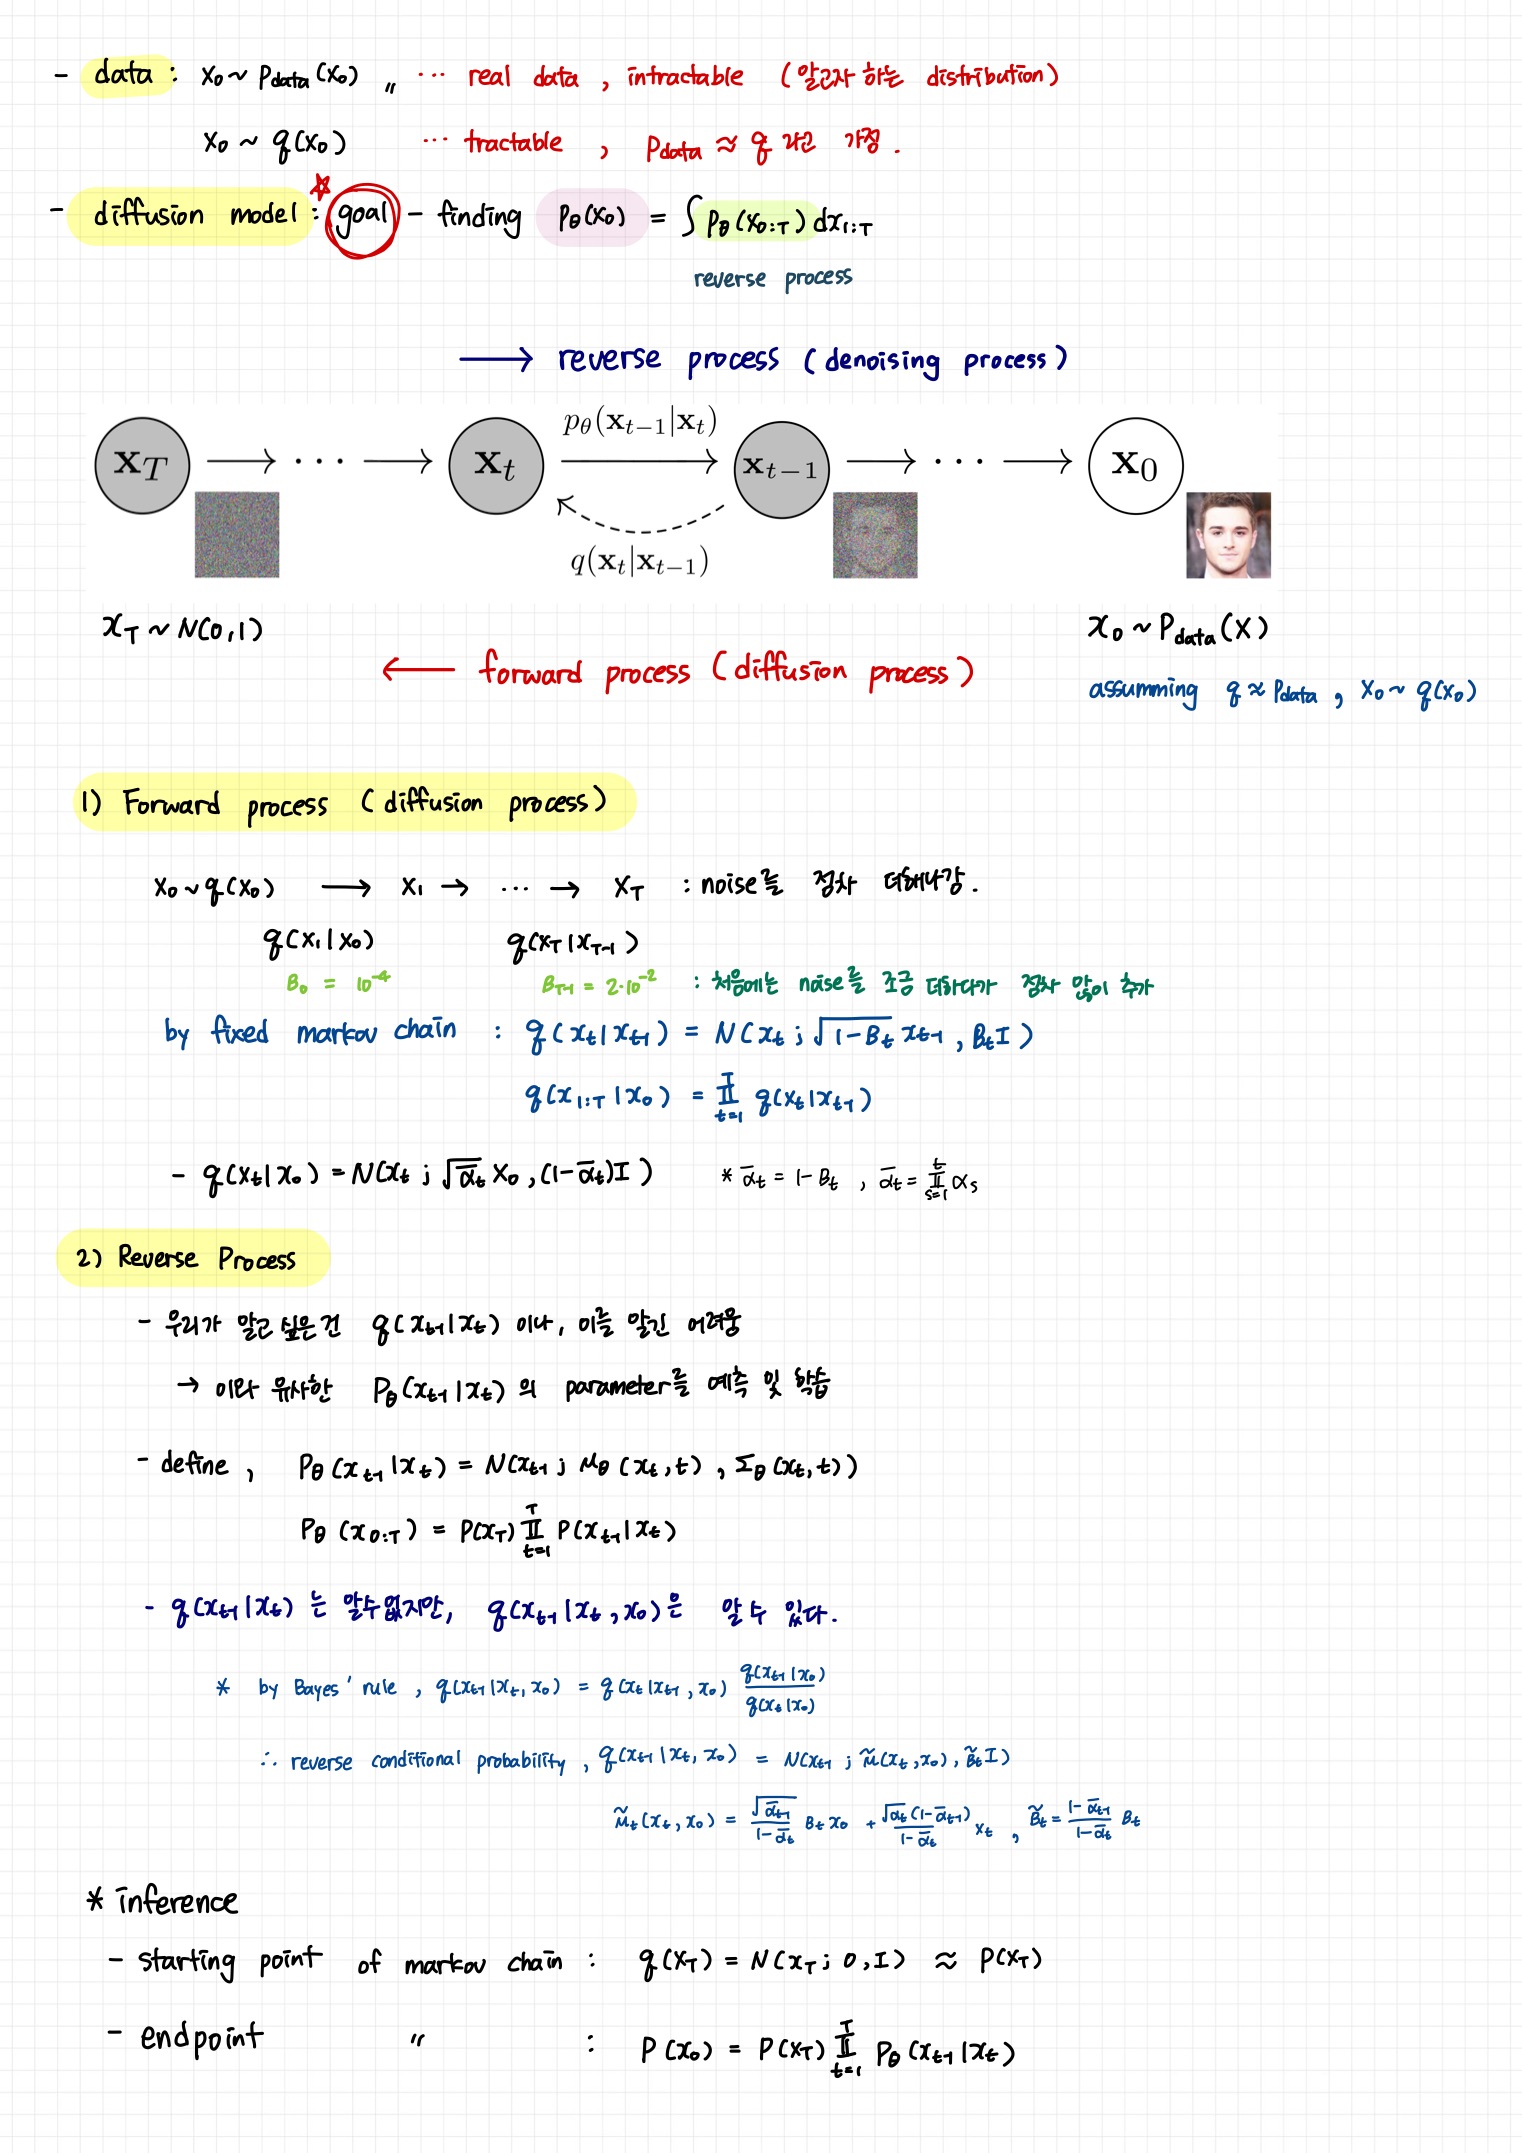 - data : x₀ ~ Pdata(x₀) 〃 ⋯ real data , intractable (알고자 하는 distribution)
x₀ ~ q(x₀) ⋯ tractable , Pdata ≈ q 라고 가정.
- diffusion model : ☆ goal - finding Pθ(x₀) = ∫ Pθ(x₀:T) dx₁:T
reverse process
→ reverse process (denoising process)
x_T → ⋯ → x_t p_θ(x_{t-1}|x_t) → x_{t-1} → ⋯ → x_0
q(x_t|x_{t-1})
x_T ~ N(0,1)
x₀ ~ Pdata(x)
← forward process (diffusion process)
assumming q ≈ Pdata , x₀ ~ q(x₀)
1) Forward process (diffusion process)
x₀ ~ q(x₀) → x₁ → ⋯ → x_T : noise를 점차 더해나감.
q(x₁|x₀) q(x_T|x_{T-1})
B₀ = 10⁻⁴ B_{T-1} = 2·10⁻² : 처음에는 noise를 조금 더하다가 점차 많이 추가
by fixed markov chain : q(x_t|x_{t-1}) = N(x_t ; √(1-B_t) x_{t-1} , B_t I)
q(x_{1:T}|x₀) = ∏_{t=1}^{T} q(x_t|x_{t-1})
- q(x_t|x₀) = N(x_t ; √ᾱ_t x₀ , (1-ᾱ_t)I) * ᾱ_t = 1-B_t , ᾱ_t = ∏_{s=1}^{t} α_s
2) Reverse Process
- 우리가 알고 싶은건 q(x_{t-1}|x_t) 이나, 이를 알긴 어려움
→ 이와 유사한 Pθ(x_{t-1}|x_t) 의 parameter를 예측 및 학습
- define , Pθ(x_{t-1}|x_t) = N(x_{t-1} ; μθ(x_t,t) , Σθ(x_t,t))
Pθ(x_{0:T}) = P(x_T) ∏_{t=1}^{T} P(x_{t-1}|x_t)
- q(x_{t-1}|x_t) 는 알수 없지만, q(x_{t-1}|x_t,x₀)은 알 수 있다.
* by Bayes' rule , q(x_{t-1}|x_t,x₀) = q(x_t|x_{t-1},x₀) q(x_{t-1}|x₀) / q(x_t|x₀)
∴ reverse conditional probability , q(x_{t-1}|x_t,x₀) = N(x_{t-1} ; μ̃(x_t,x₀) , B̃_t I)
μ̃_t(x_t,x₀) = √ᾱ_{t-1} / (1-ᾱ_t) B_t x₀ + √α_t(1-ᾱ_{t-1}) / (1-ᾱ_t) x_t , B̃_t = (1-ᾱ_{t-1}) / (1-ᾱ_t) B_t
* inference
- starting point of markov chain : q(x_T) = N(x_T ; 0,I) ≈ P(x_T)
- endpoint 〃 : P(x₀) = P(x_T) ∏_{t=1}^{T} Pθ(x_{t-1}|x_t)